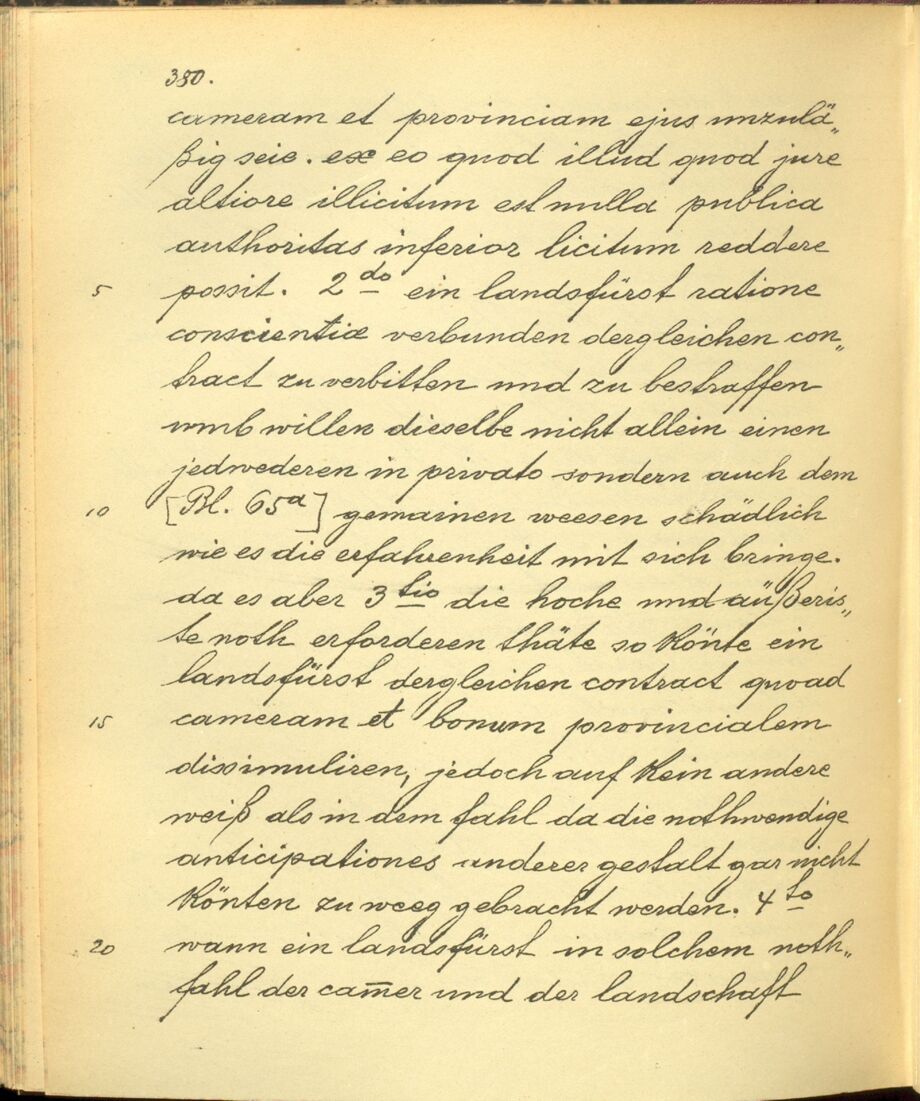 380.
cameram et provinciam ejus unzulä„
ßig seie. ex eo quod illud quod jure
altiore illicitum est nulla publica
authoritas inferior licitum reddere
5 possit. 2do ein landsfürst ratione
conscientiæ verbunden dergleichen con„
tract zu verbitten und zu bestraffen
umb willen dieselbe nicht allein einen
jedwederen in privato sondern auch dem
10 [Bl. 65a] gemainen weesen schädlich
wie es die erfahrenheit mit sich bringe.
da es aber 3tio die hoche und äüßeris„
te noth erforderen thäte so könte ein
landsfürst dergleichen contract quoad
15 cameram et bonum provincialem
dissimuliren, jedoch auf kein andere
weiß als in dem fahl da die nothwendige
anticipationes anderer gestalt gar nicht
könten zu weeg gebracht werden. 4to
20 wann ein landsfürst in solchem noth„
fahl der cam̅er und der landschaft